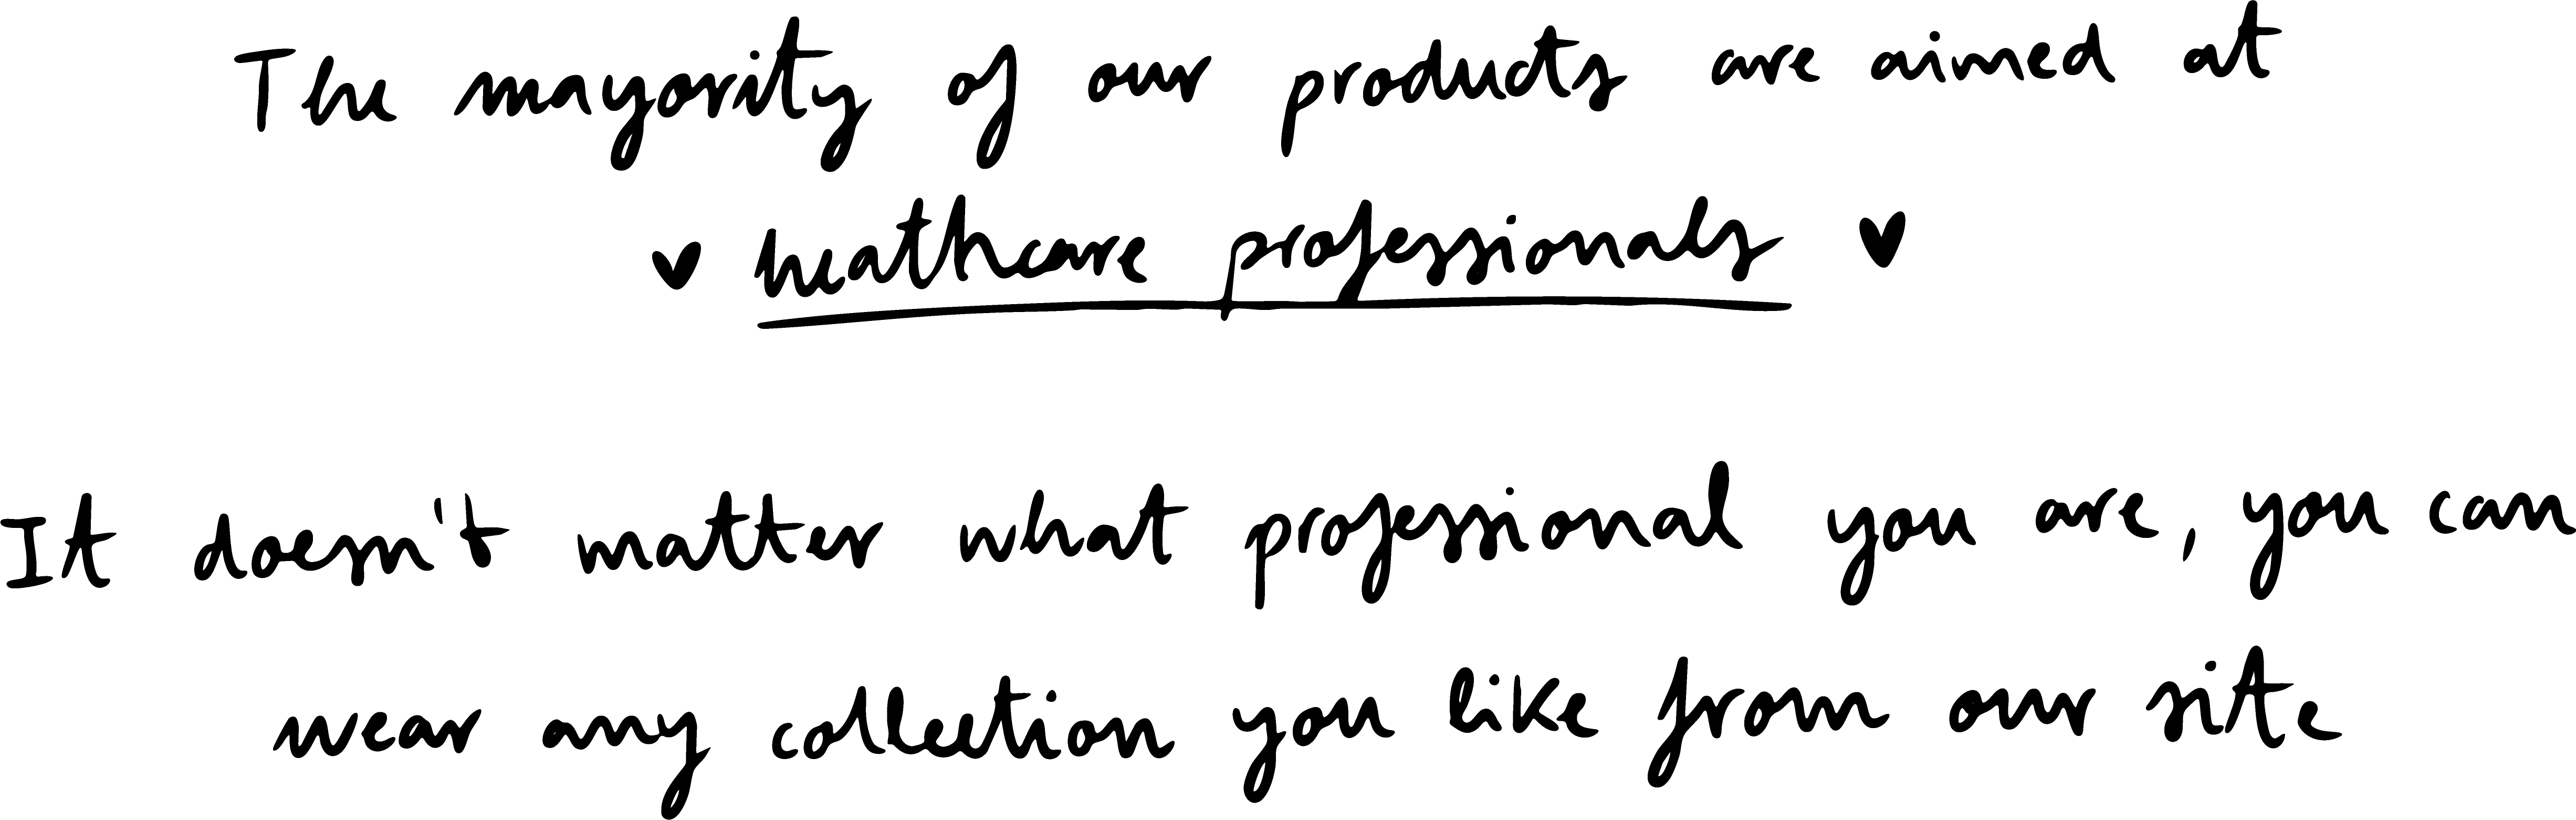 The mayority of our products are aimed at
♥ heathcare professionals ♥
It doesn't matter what professional you are, you can
wear any collection you like from our site